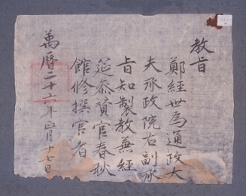 教旨
鄭經世爲通政大
夫承政院右副承
旨知製敎兼經
筵參贊官春秋
館修撰官者
萬曆二十六年 月十七日